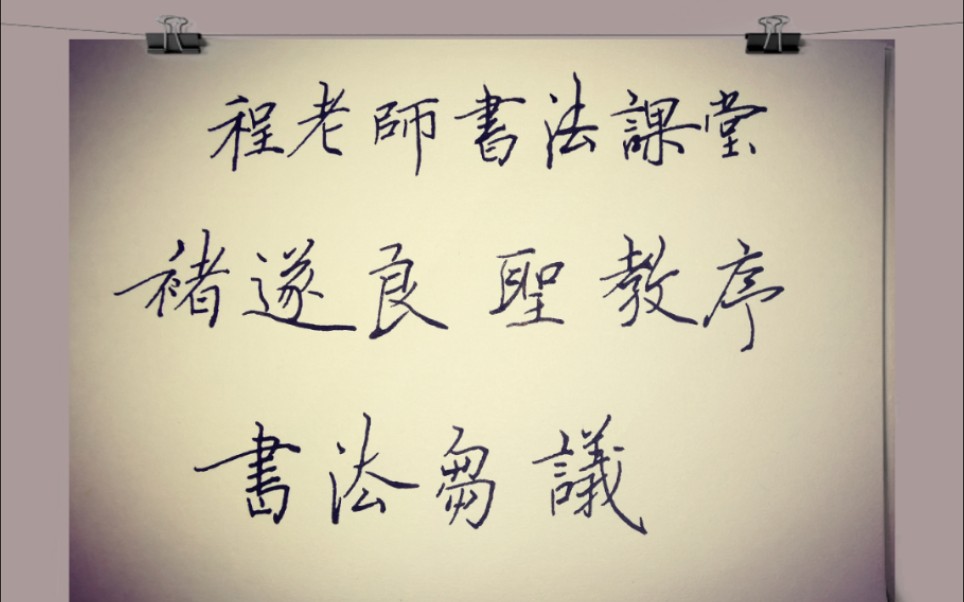 程老師書法課堂
褚遂良 聖教序
書法芻議